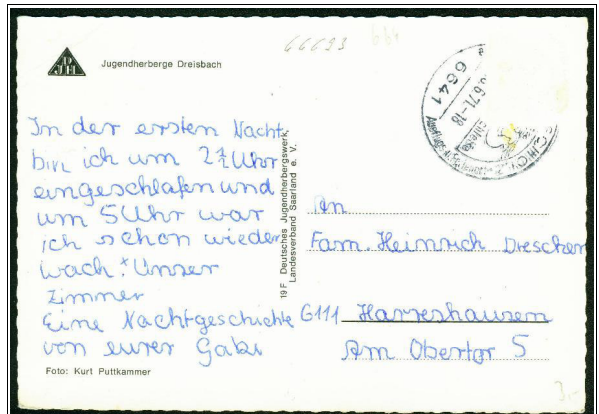 66693
664
DJH
Jugendherberge Dreisbach
6641
.6.71-18
In der ersten Nacht
bin ich um 2½ Uhr
eingeschlafen und
um 5 Uhr war
ich schon wieder
wach! Unser
Zimmer
Eine Nachtgeschichte
von eurer Gabi
Foto: Kurt Puttkammer
19 F Deutsches Jugendherbergswerk,
Landesverband Saarland e. V.
An
Fam. Heinrich Drescher
6111 Harreshausen
Am Obertor 5
3,-